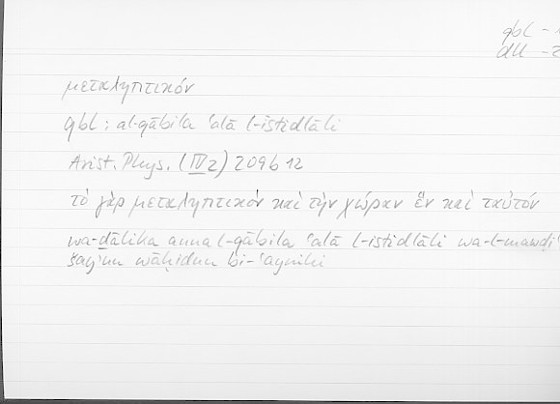 qbl -
dll - 2
μεταληπτικόν
qbl : al-qābila ʿalā l-istidlāli
Arist. Phys. (IV 2) 209b12
τὸ γὰρ μεταληπτικὸν καὶ τὴν χώραν ἓν καὶ ταὐτόν
wa-ḏālika anna l-qābila ʿalā l-istidlāli wa-l-mawḍi
šayʾun wāḥidun bi-ʿaynihi